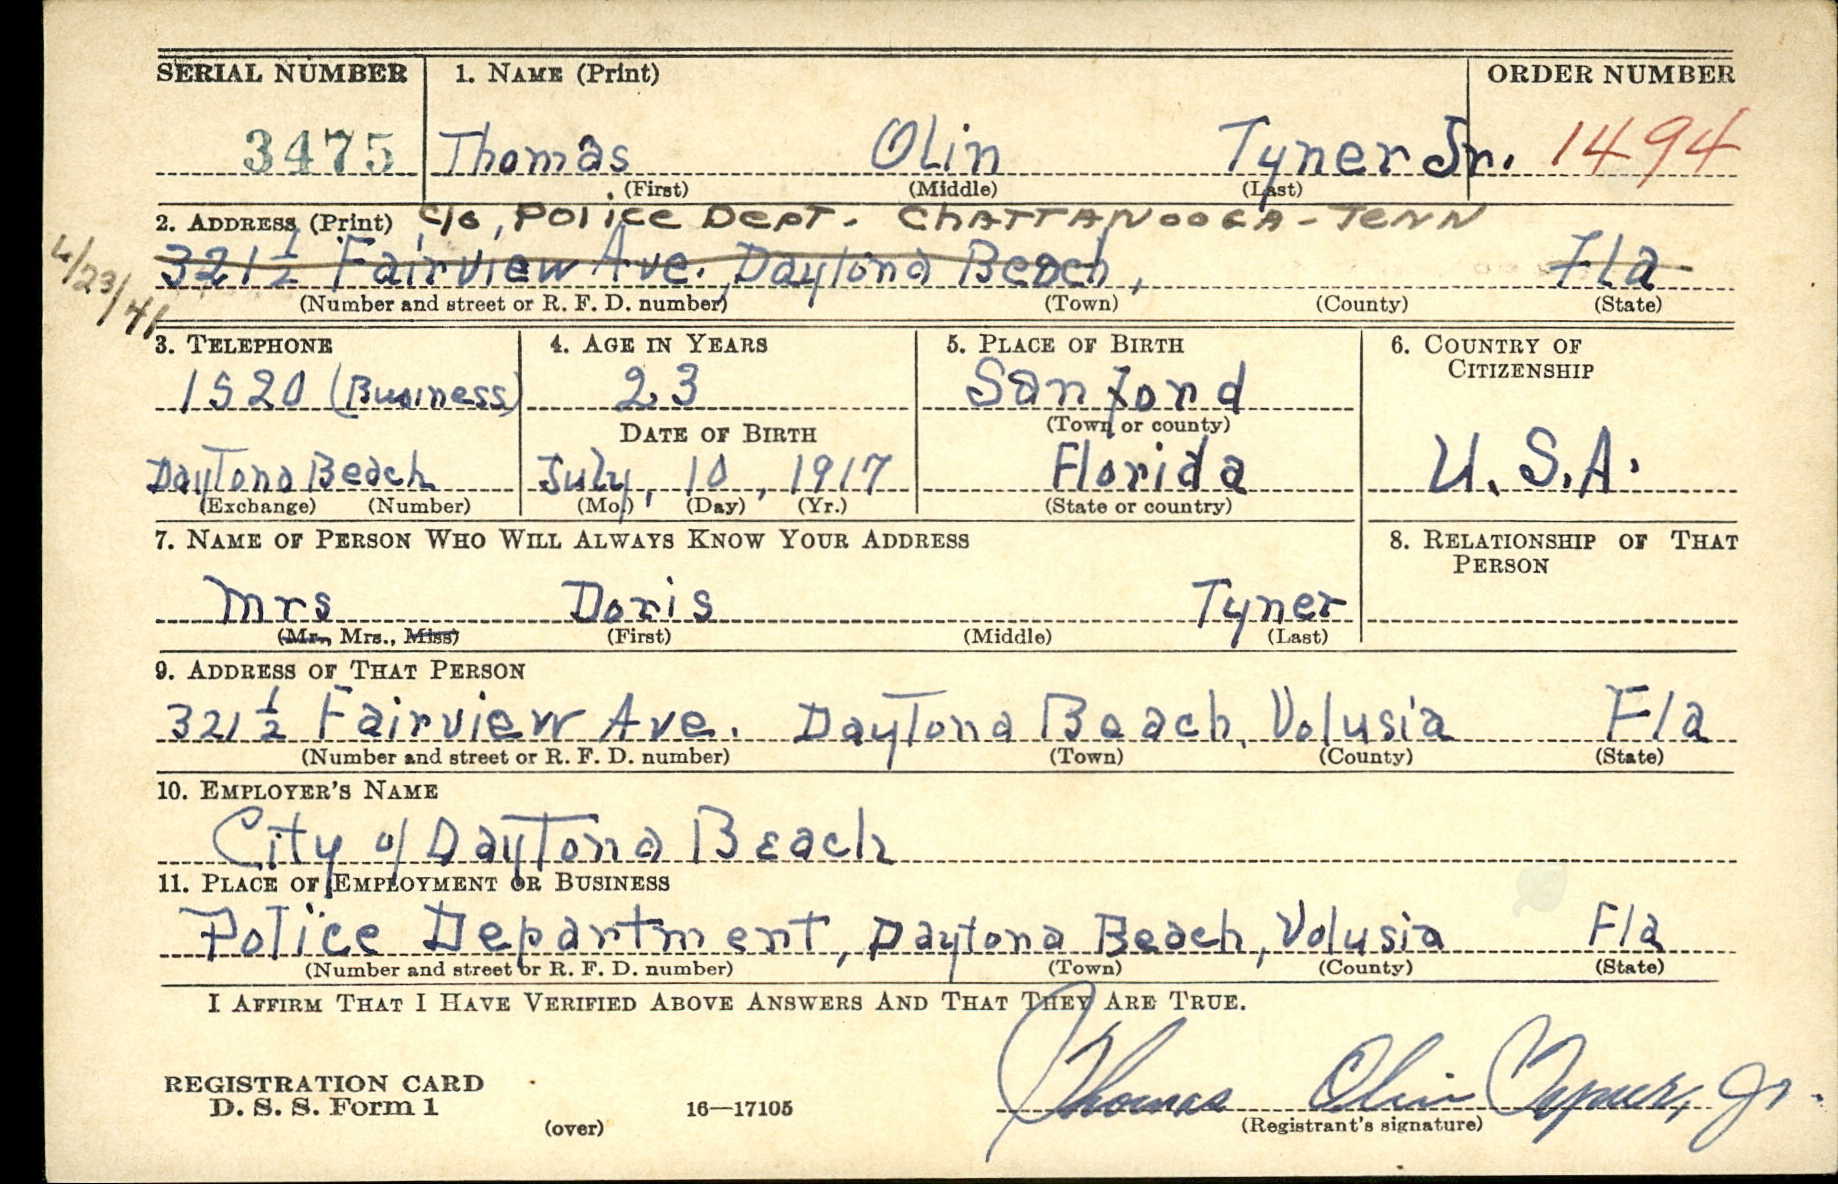 SERIAL NUMBER 1. NAME (Print) ORDER NUMBER
3475 Thomas Olin Tyner Jr. 1494
(First) (Middle) (Last)
2. ADDRESS (Print) c/o, Police Dept. Chattanooga - Tenn
4/23/41
321 1/2 Fairview Ave. Daytona Beach, Fla
(Number and street or R. F. D. number) (Town) (County) (State)
3. TELEPHONE 4. AGE IN YEARS 5. PLACE OF BIRTH 6. COUNTRY OF CITIZENSHIP
1520 (Business) 23 Sanford
DATE OF BIRTH (Town or county)
Daytona Beach July, 10, 1917 Florida U.S.A.
(Exchange) (Number) (Mo.) (Day) (Yr.) (State or country)
7. NAME OF PERSON WHO WILL ALWAYS KNOW YOUR ADDRESS 8. RELATIONSHIP OF THAT PERSON
Mrs Doris Tyner
(Mr., Mrs., Miss) (First) (Middle) (Last)
9. ADDRESS OF THAT PERSON
321 1/2 Fairview Ave. Daytona Beach, Volusia Fla
(Number and street or R. F. D. number) (Town) (County) (State)
10. EMPLOYER'S NAME
City of Daytona Beach
11. PLACE OF EMPLOYMENT OR BUSINESS
Police Department, Daytona Beach, Volusia Fla
(Number and street or R. F. D. number) (Town) (County) (State)
I AFFIRM THAT I HAVE VERIFIED ABOVE ANSWERS AND THAT THEY ARE TRUE.
REGISTRATION CARD
D. S. S. Form 1 16—17105 Thomas Olin Tyner, Jr.
(over) (Registrant's signature)